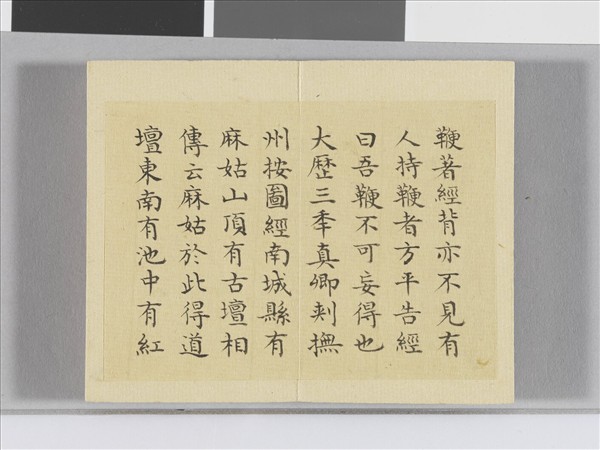 鞭著經背亦不見有
人持鞭者方平告經
曰吾鞭不可妄得也
大歷三年真卿刾撫
州按圖經南城縣有
麻姑山頂有古壇相
傳云麻姑於此得道
壇東南有池中有紅